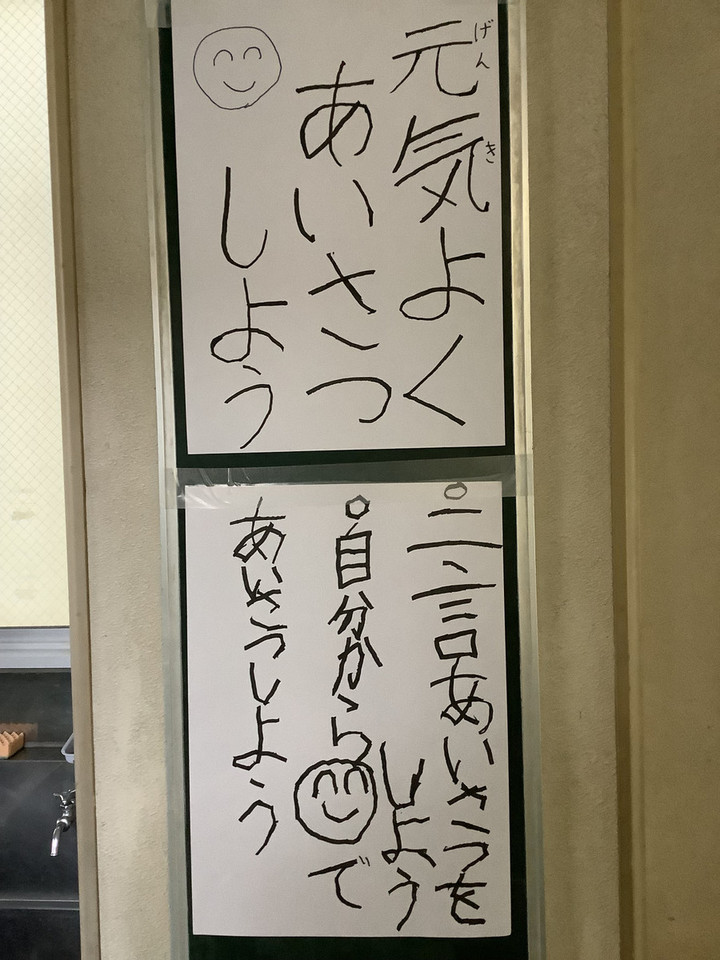 元気よく
げんき
あいさつ
しよう
○二言あいさつを
しよう
○自分から😊で
あいさつしよう